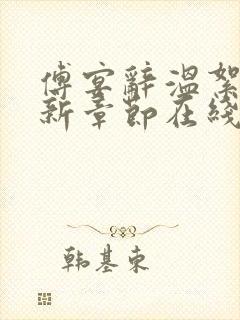 傅宴辞温絮
新章節在綫
韩基東